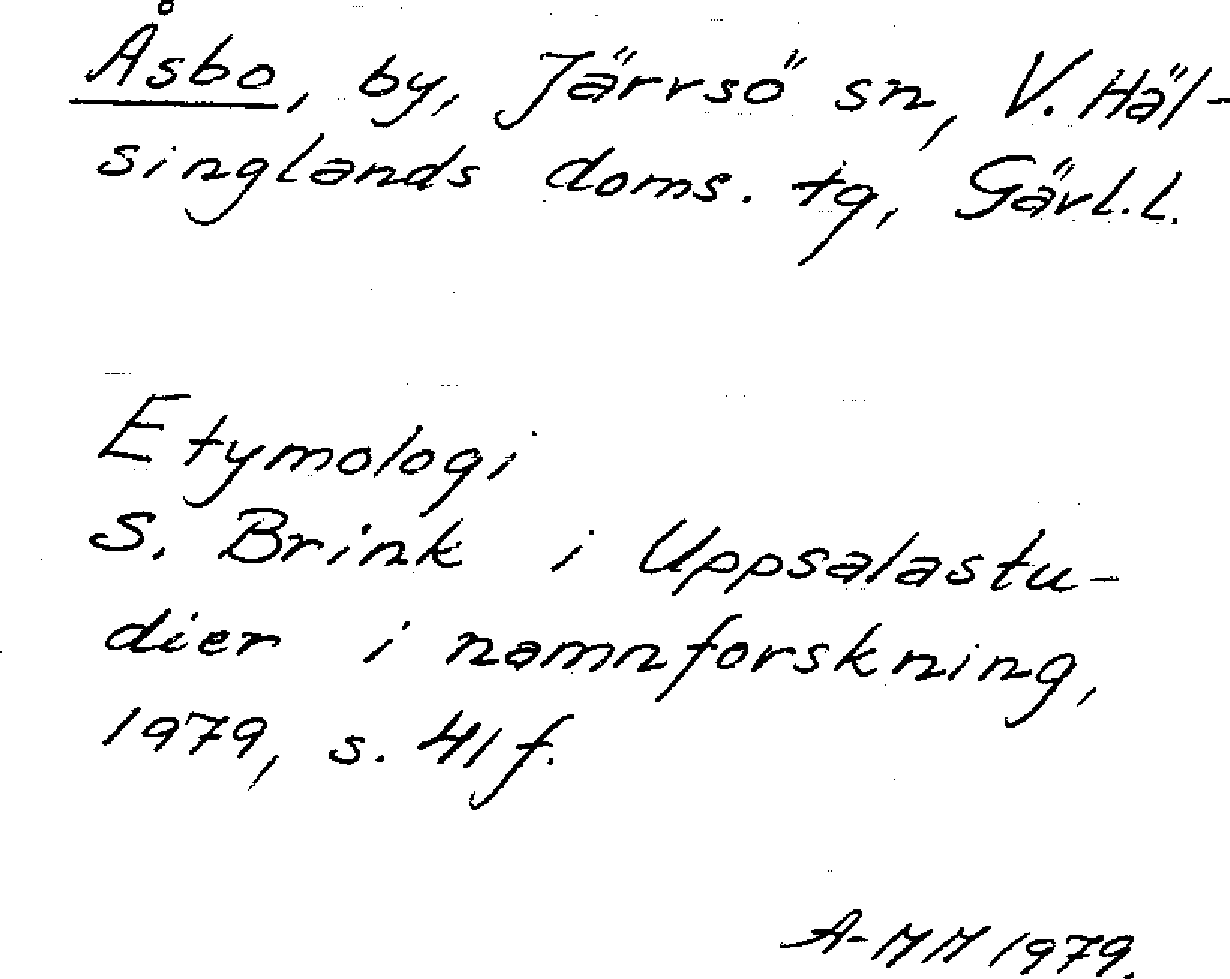 Åsbo, by, Järvsö sn, V. Häl-
singlands doms. tg, Gävl.l.
Etymologi
S. Brink i Uppsalastu-
dier i namnforskning,
1979, s. 41 f.
A-MM 1979.